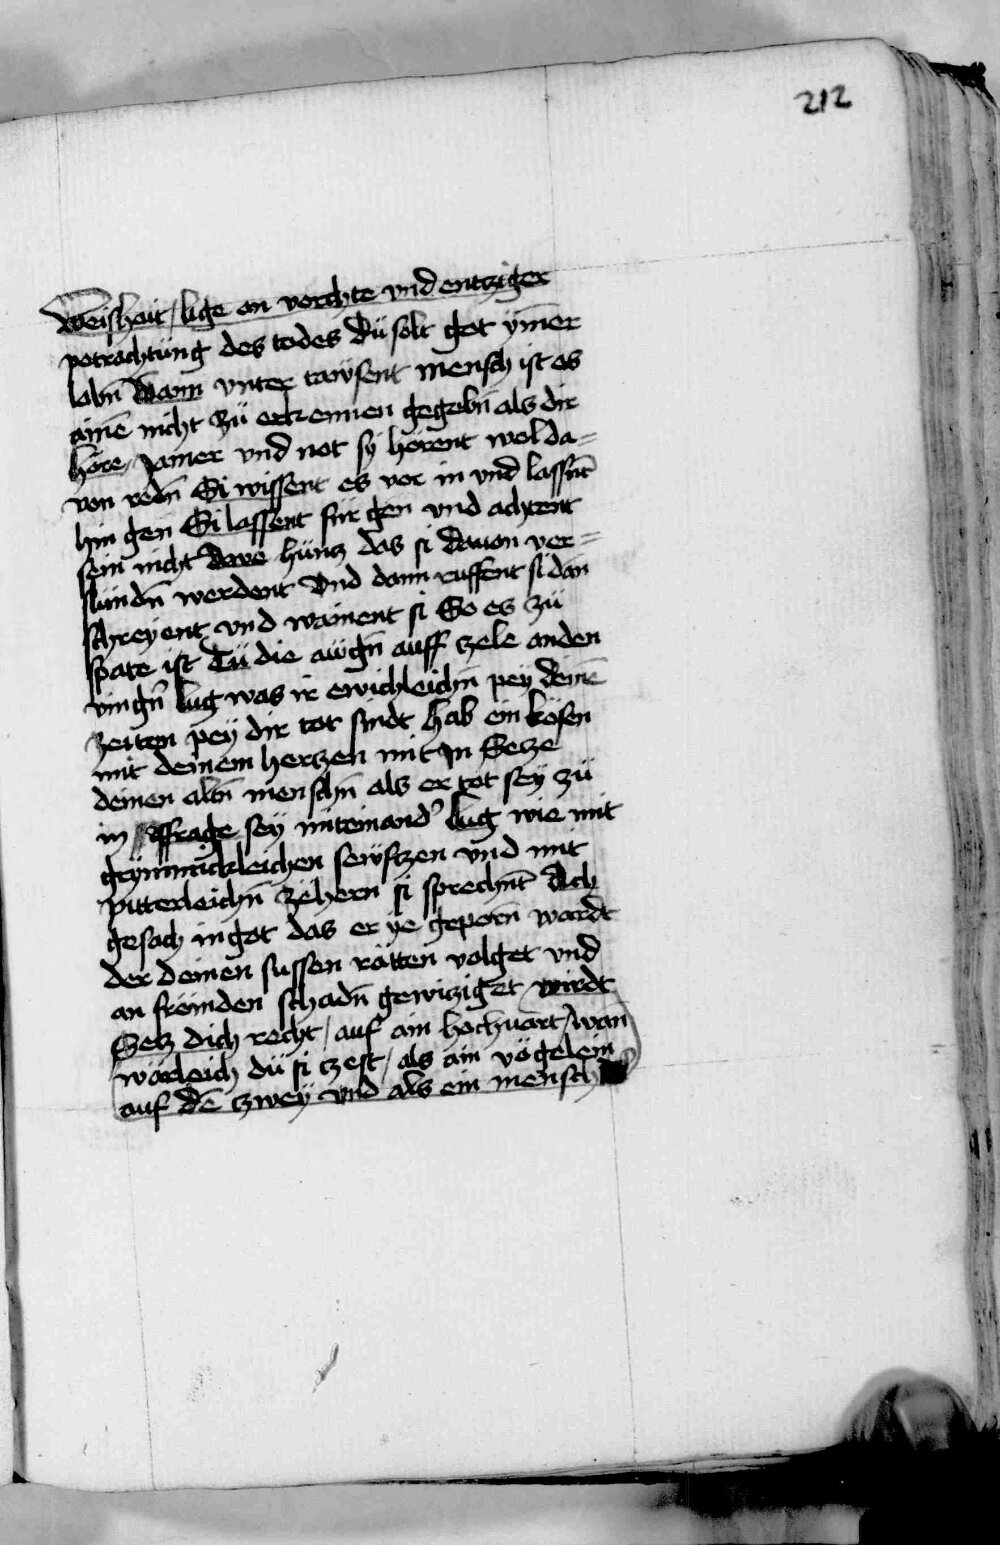 212
Weishait / lige an vorchte vnd entziger
petrachtüng des todes Dü solt got ymer
lobñ Wann vnter tawsent mensch ist es
ainē nicht zü erkennen gegebñ als dir
höre / Jamer vnd not sy hörent wol da=
von redñ Si wissent es vor in vnd lassñt
hin gen Si lassent für gen vnd achtent
sein nicht hüncz das si dauon ver=
slündñ werdent Vnd dann ruffent si dañ
schreyent vnd wainent si So es zü
spate ist Tü die awgñ auff zele anden
vingñ lug was ir ewichleichñ pey deinē
zeiten pey dir tot sindt Hab ein kösen
mit deinem herczen mit in Secze
deinen altñ menschñ als er tot sey zü
in ffrage sey miteinand' lug wie mit
grymmickleichen sewfczen vnd mit
pitterleichñ zëhern si sprechñt Ach
gesach in got das er ye geporñ wardt
der deinen sussen rätten volget vnd
an frömden schadñ gewicziget wirdt
Secz dich recht / auf ain hochuart / wan
warleich dü si czest / als ain vögelein
auf dē czwey vnd als ein mensch